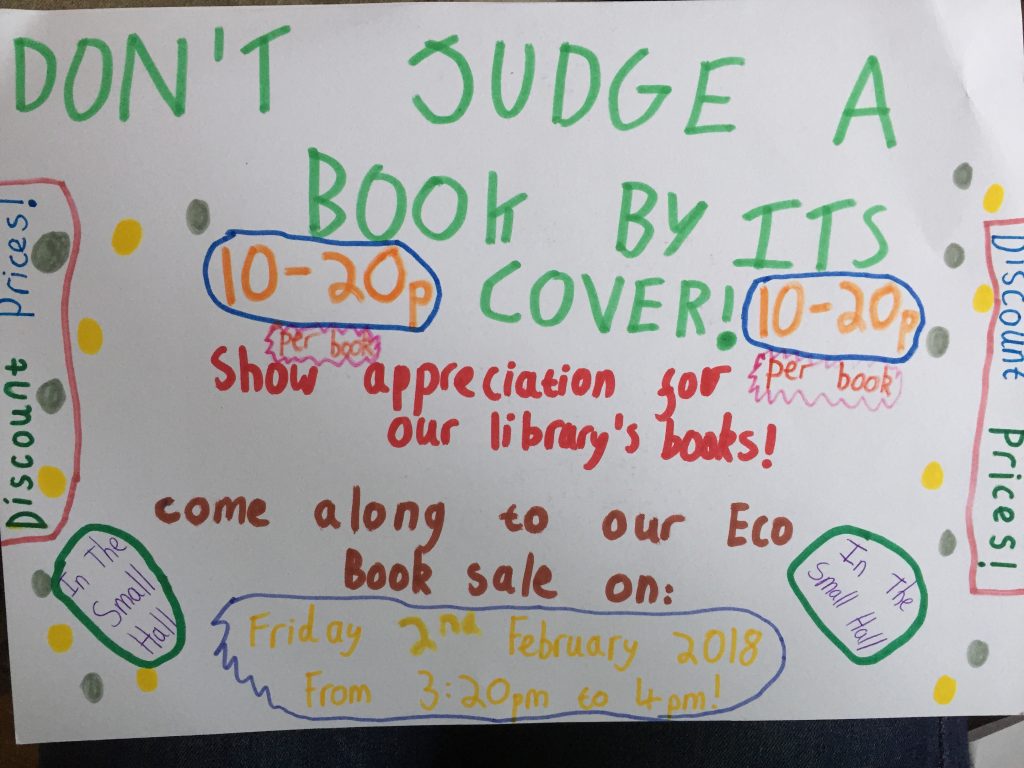 DON'T JUDGE A
BOOK BY ITS
COVER!
10-20p
per book
10-20p
per book
Show appreciation for
our library's books!
Discount Prices!
Discount Prices!
come along to our Eco
Book sale on:
In The
Small
Hall
In The
Small Hall
Friday 2nd February 2018
From 3:20pm to 4pm!